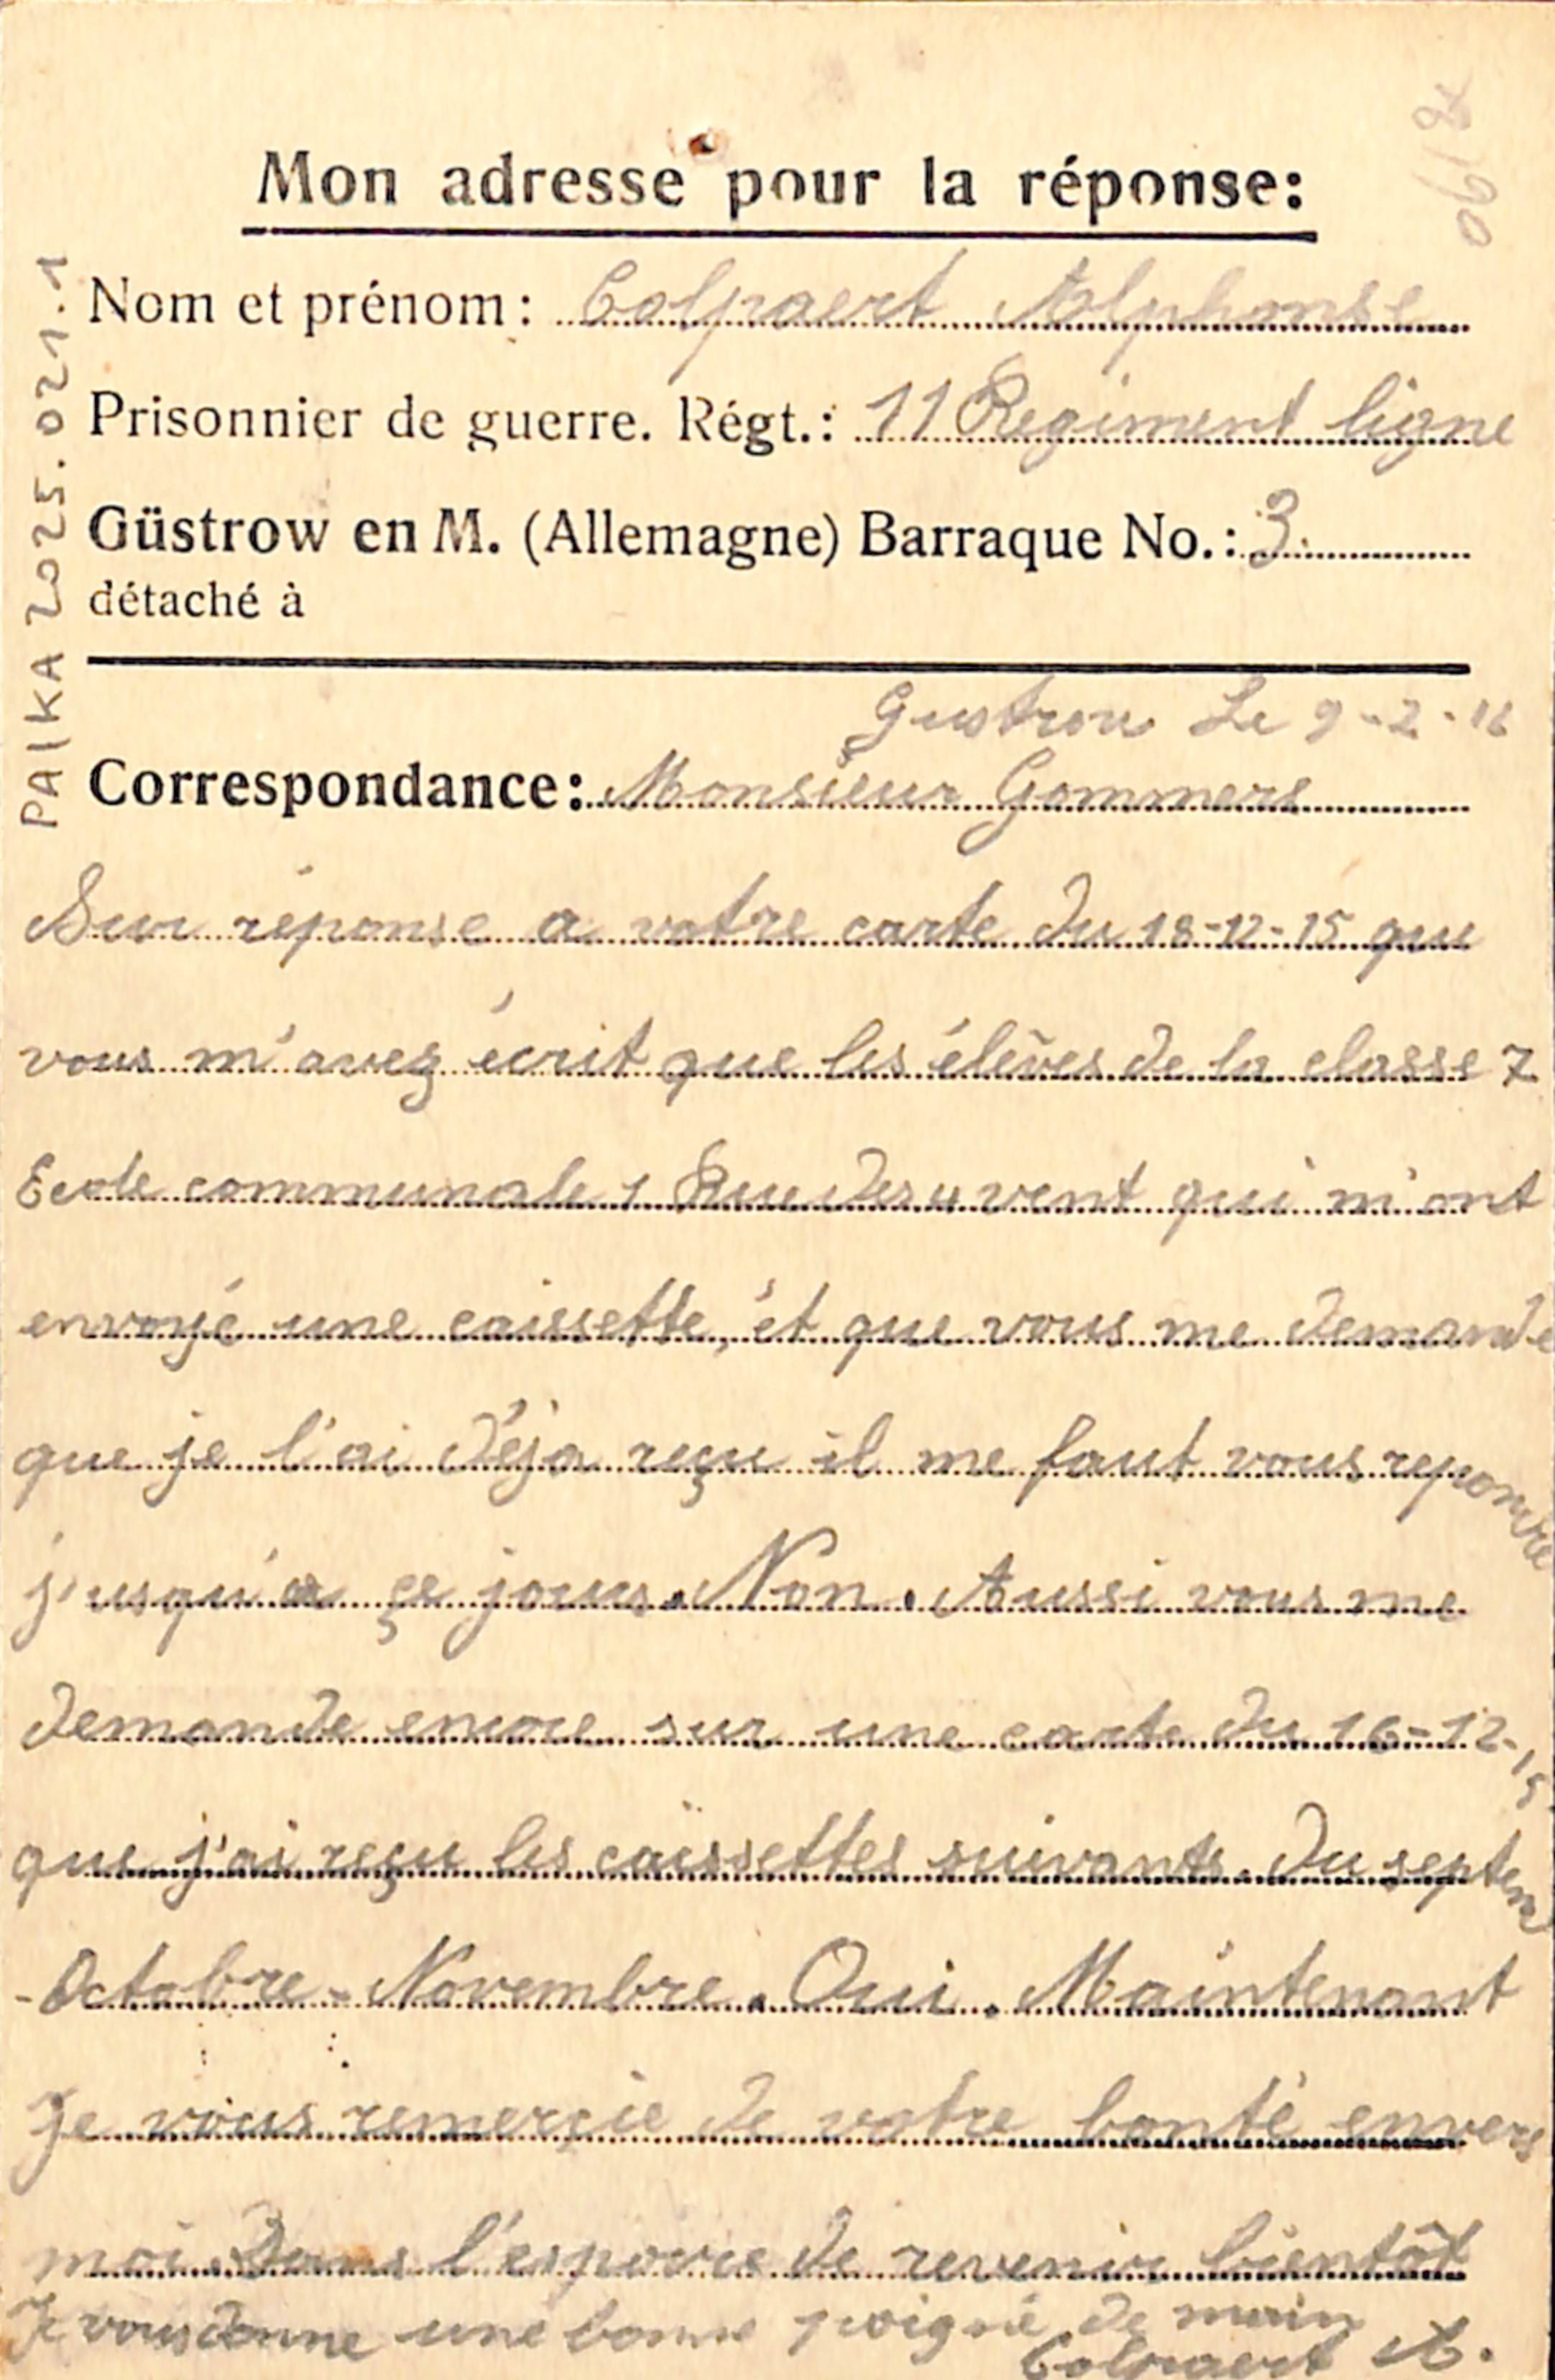 Mon adresse pour la réponse:
Nom et prénom: Colpaert Alphonse
Prisonnier de guerre. Régt.: 11 Regiment ligne
Güstrow en M. (Allemagne) Barraque No.: 3.
détaché à
Gustrow Le 9-2-16
Correspondance: Monsieur Gommers
Sur réponse a votre carte du 18-12-15 que
vous m'avez écrit que les élèves de la classe 7
Ecole communale 1 Rue des 4 vent qui m'ont
envoyé une caissette, ét que vous me demande
que je l'ai déja reçu il me faut vous repondre
j'usqu'a çe jours. Non. Aussi vous me
demande encore sur une carte du 16-12-15.
que j'ai reçu les caïssettes suivants. du septem
-Octobre-Novembre. Oui. Maintenant
Je vous remerçie de votre bonté envers
moi. Dans l'espovie de revenir bientôt
Je vous donne une bonne poigné de main
Colpaert A.
PALKA 2025.021.1